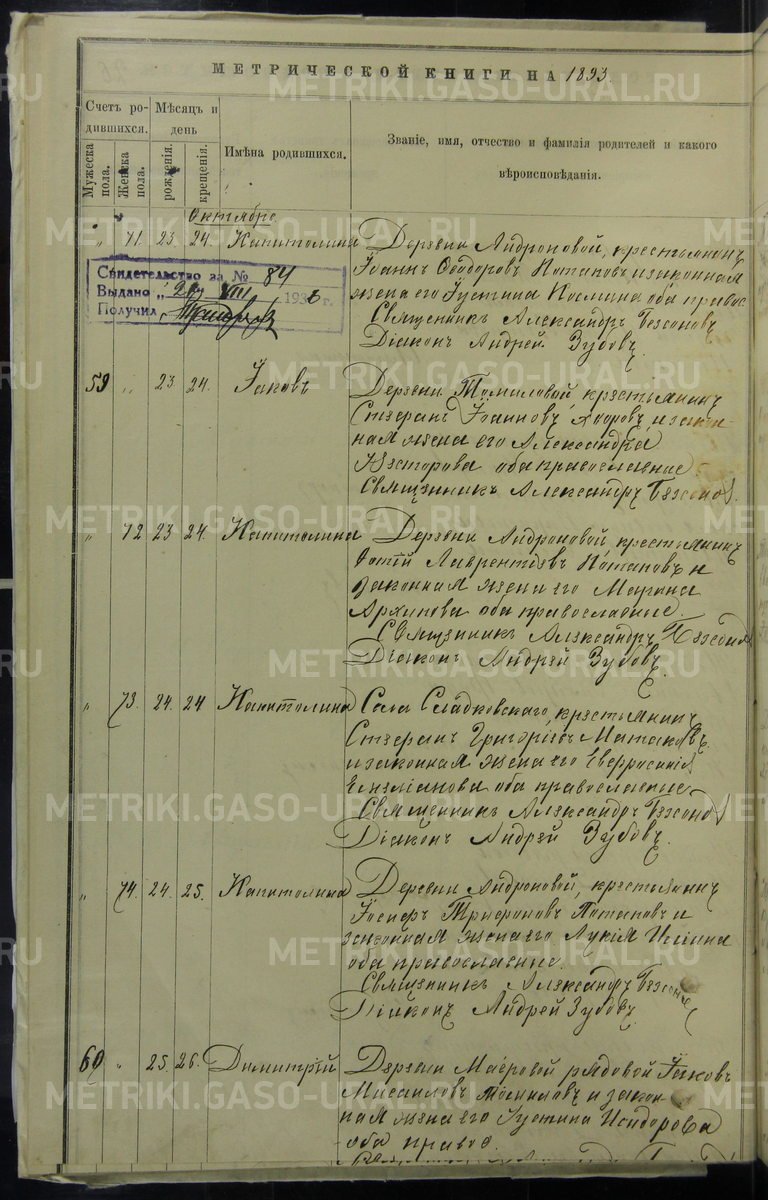 МЕТРИЧЕСКОЙ КНИГИ НА 1893.
Счетъ ро-
дившихся.
Мѣсяцъ и
день
Имѣна родившихся.
Званіе, имя, отчество и фамилія родителей и какого
вѣроисповѣданія.
Мужеска
пола.
Женска
пола.
рожденія.
крещенія.
Октябре
" 71. 23. 24. Капитолина Деревни Андроновой, крестьянинъ
Іоаннъ Ѳеодоровъ Потаповъ и законная
жена его Іустина Космина оба правос.
Священникъ Александръ Безсоновъ
Діаконъ Андрей Зубовъ
Свидетельство за № 84
Выдано " VIII 193 г.
Получил
59 " 23 24. Іаковъ Деревни Томиловой крестьянинъ
Стефанъ Іоанновъ и закон-
ная жена его Александра
Несторова оба православные
Священникъ Александръ Безсоновъ.
" 72 23 24. Капитолина Деревни Андроновой, крестьянинъ
Фотій Лаврентіевъ Потаповъ и
законная жена его Марина
Архипова оба православные.
Священникъ Александръ Безсонов
Діаконъ Андрей Зубовъ.
" 73. 24. 24 Капитолина Села Сладковскаго, крестьянинъ
Стефанъ Григоріевъ
и законная жена его
Емеліанова оба православные
Священникъ Александръ Безсонов
Діаконъ Андрей Зубовъ.
" 74. 24. 25. Капитолина Деревни Андроновой, крестьянинъ
Іосифъ Трифоновъ Потаповъ и
законная жена его Лукія Иліина
оба православные.
Священникъ Александръ Безсонов
Діаконъ Андрей Зубовъ
60 " 25. 26. Димитрій Деревни Маеровой рядовой Іаковъ
Мисаиловъ Томиловъ и закон-
ная жена его Іустина Исидорова
оба правос.
METRIKI.GASO-URAL.RU